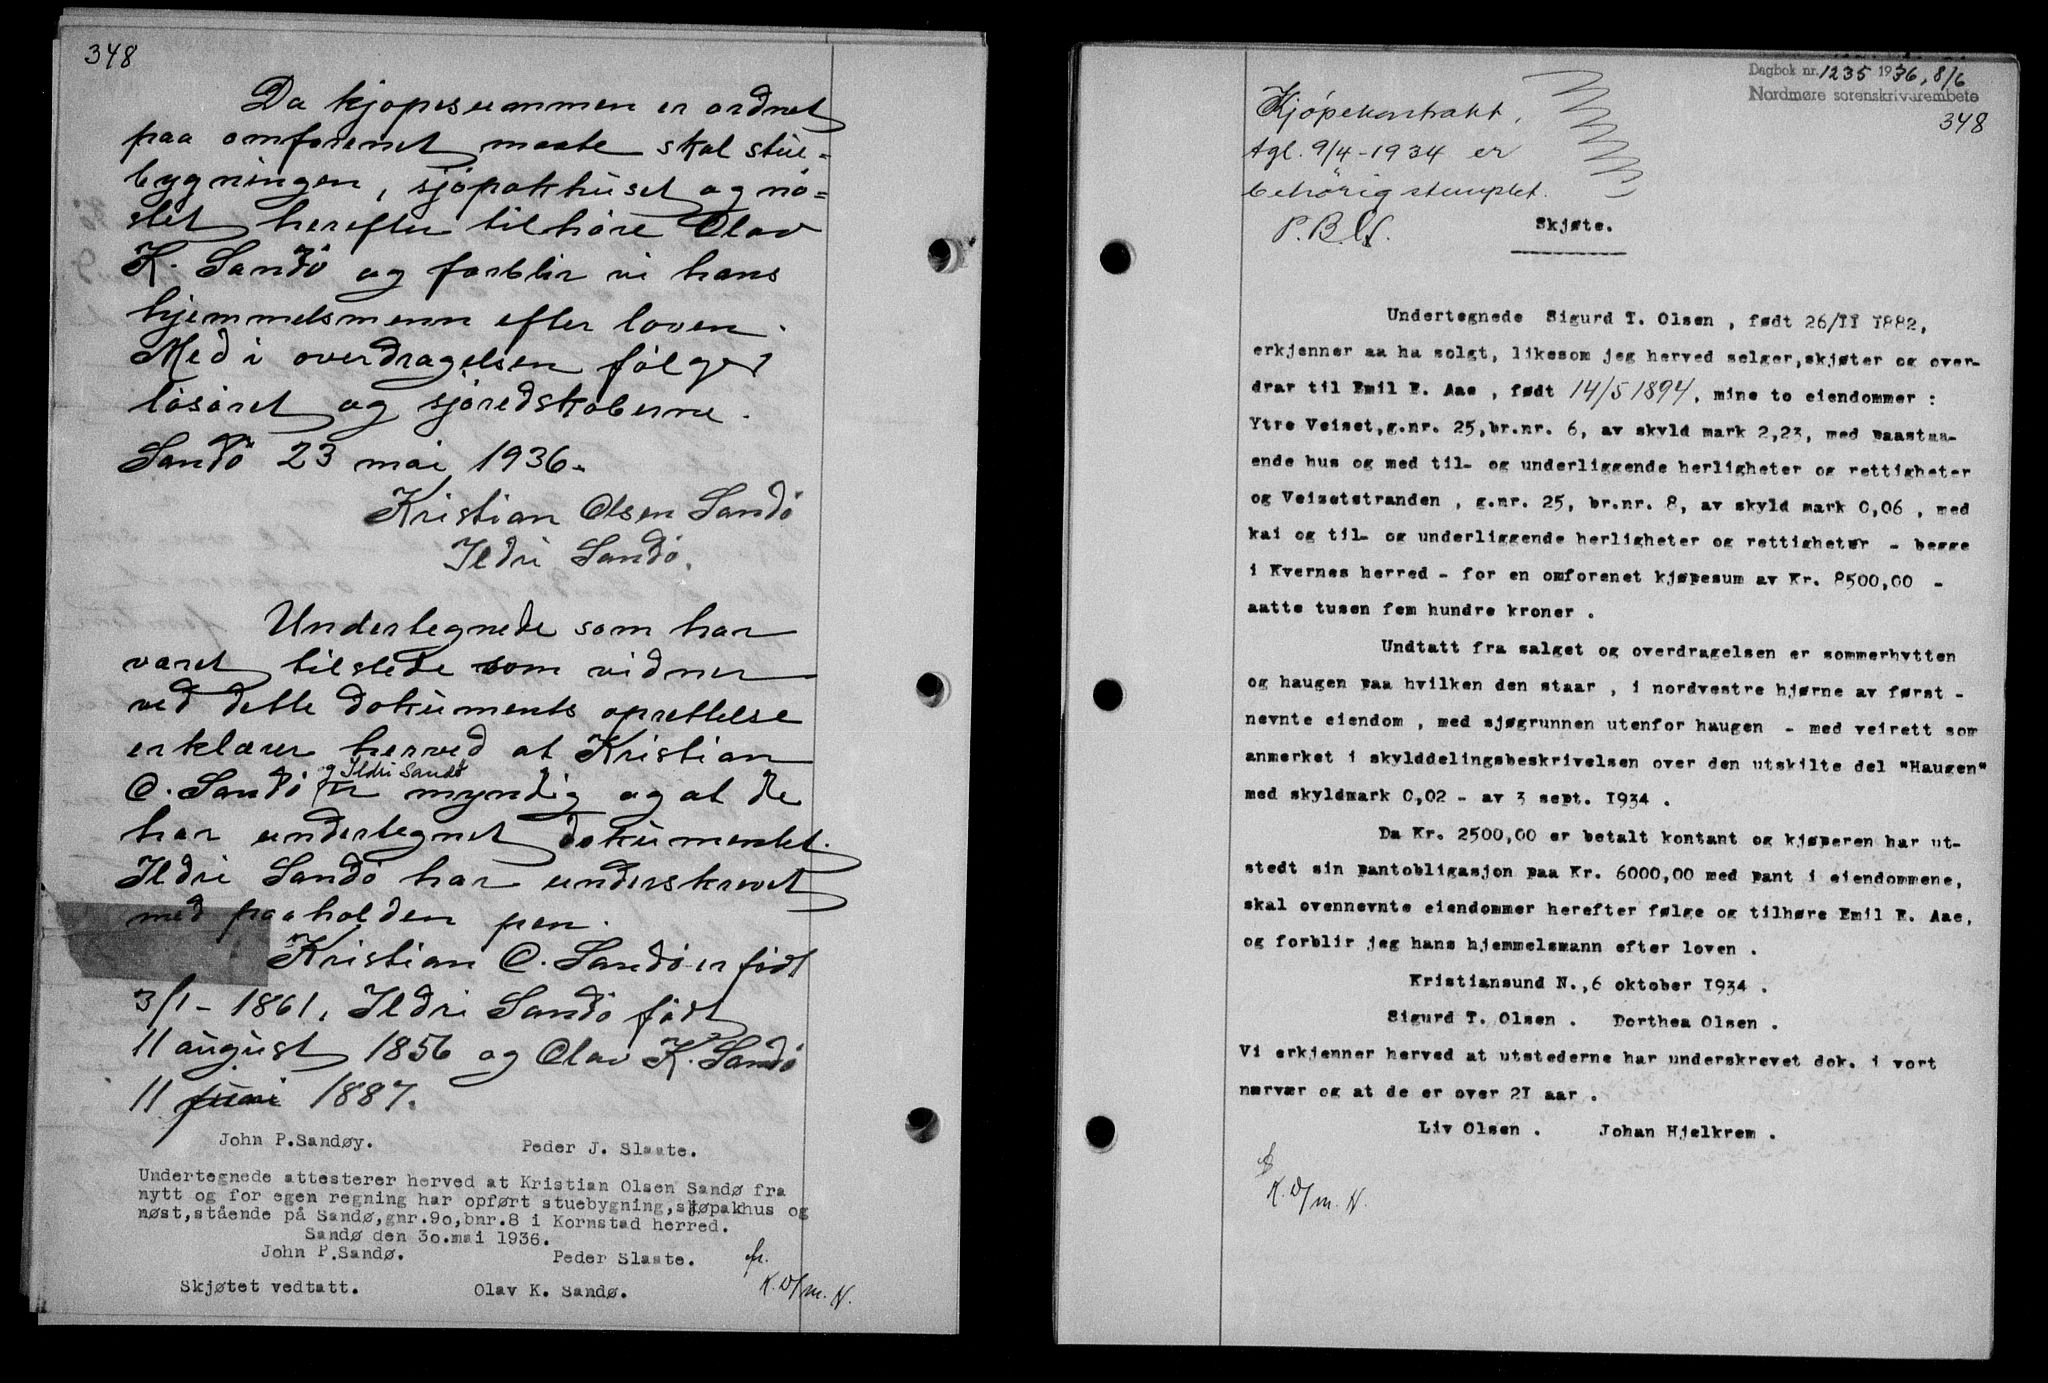 348
Da kjøpesummen er ordnet
paa omforenet maate skal stue-
bygningen, sjøpakhuset og nø-
stet herefter tilhøre Olav
K. Sandø og forblir vi hans
hjemmelsmenn efter loven.
Med i overdragelsen følger
løsøret og sjøredskaberne.
Sandø 23 mai 1936.
Kristian Olsen Sandø
Ildri Sandø.
Undertegnede som har
været tilstede som vidner
ved dette dokuments oprettelse
erklærer herved at Kristian
og Ildri Sandø
O. Sandø er myndig og at de
har undertegnet dokumentet.
Ildri Sandø har underskrevet
med paaholden pen.
Kristian O. Sandø er født
3/1-1861, Ildri Sandø født
11 august 1856 og Olav K. Sandø
11 juni 1887.
John P.Sandøy. Peder J. Slaate.
Undertegnede attesterer herved at Kristian Olsen Sandø fra
nytt og for egen regning har opført stuebygning, sjøpakhus og
nøst,stående på Sandø,gnr.90,bnr.8 i Kornstad herred.
Sandø den 30.mai 1936.
John P.Sandø. Peder Slaate.
Skjøtet vedtatt. Olav K. Sandø.
K. D/m. N.
Dagbok nr. 1235 1936, 8/6
Nordmøre sorenskrivarembete
348
Kjøpekontrakt,
dgl. 9/4-1934 er
behørig stemplet.
Skjøte.
Undertegnede Sigurd T. Olsen , født 26/II 1882,
erkjenner aa ha solgt, likesom jeg herved selger,skjøter og over-
drar til Emil E. Aae , født 14/5 1894, mine to eiendommer :
Ytre Veiset,g.nr. 25,br.nr. 6, av skyld mark 2,23, med paastaa-
ende hus og med til- og underliggende herligheter og rettigheter
og Veisetstranden , g.nr. 25, br.nr. 8, av skyld mark 0,06 , med
kai og til- og underliggende herligheter og rettigheter - begge
i Kvernes herred - for en omforenet kjøpesum av Kr. 8500,00 -
aatte tusen fem hundre kroner .
Undtatt fra salget og overdragelsen er sommerhytten
og haugen paa hvilken den staar , i nordvestre hjørne av først -
nevnte eiendom , med sjøgrunnen utenfor haugen - med veirett som
anmerket i skylddelingsbeskrivelsen over den utskilte del "Haugen"
med skyldmark 0,02 - av 3 sept. I934 .
Da Kr. 2500,00 er betalt kontant og kjøperen har ut-
stedt sin pantobligasjon paa Kr. 6000,00 med pant i eiendommene,
skal ovennevnte eiendommer herefter følge og tilhøre Emil E. Aae,
og forblir jeg hans hjemmelsmann efter loven .
Kristiansund N.,6 oktober I934 .
Sigurd T. Olsen . Dorthea Olsen .
Vi erkjenner herved at utstederne har underskrevet dok. i vort
nærvær og at de er over 2I aar .
Liv Olsen . Johan Hjelkrem .
K. D/m. N.